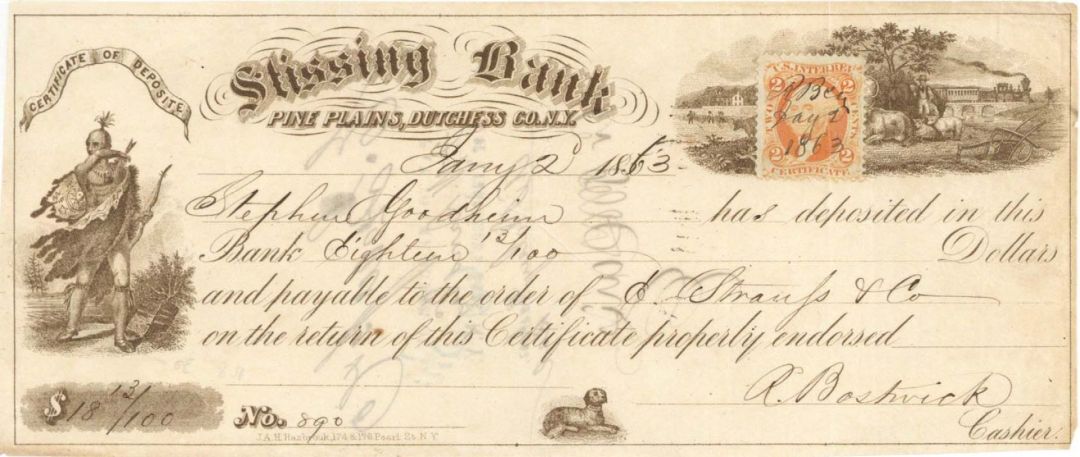 CERTIFICATE OF DEPOSITE
Stissing Bank
PINE PLAINS, DUTCHESS CO. N.Y.
U.S. INTER. REV.
2 2
TWO CENTS
2 2
CERTIFICATE
Jany 2
1863
Jany 2 1863
Stephen Goodheim has deposited in this
Bank Eighteen 13/100 Dollars
and payable to the order of E Strauss & Co
on the return of this Certificate properly endorsed
$18 13/100 No. 890 R. Bostwick
J.A.H. Hasbrouk, 174 & 176 Pearl St. N.Y. Cashier.